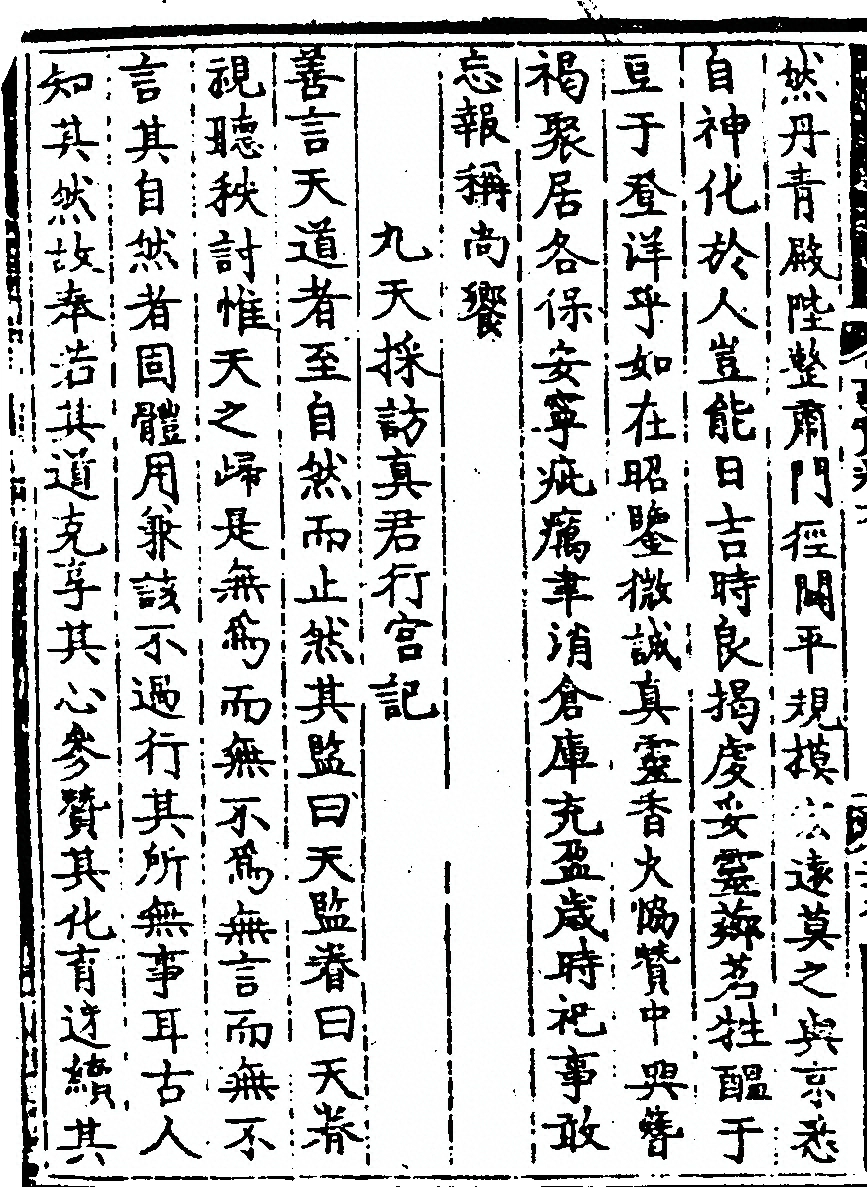 然丹青殿陛整肅門徑閎平規摸宏遠莫之與京悉
自神化於人豈能日吉時良揭虔妥靈蘋茗牲醖于
豆于登洋乎如在昭鑒微誠真靈香火恊贊中興簪
褐聚居各保安寧疵癘聿消倉庫充盈歲時祀事敢
忘報稱尚饗
九天採訪真君行宫記
善言天道者至自然而止然其監曰天監眷曰天眷
視聽秩討惟天之歸是無爲而無不爲無言而無不
言其自然者固體用兼該不過行其所無事耳古人
知其然故奉若其道克享其心參贊其化育迓續其